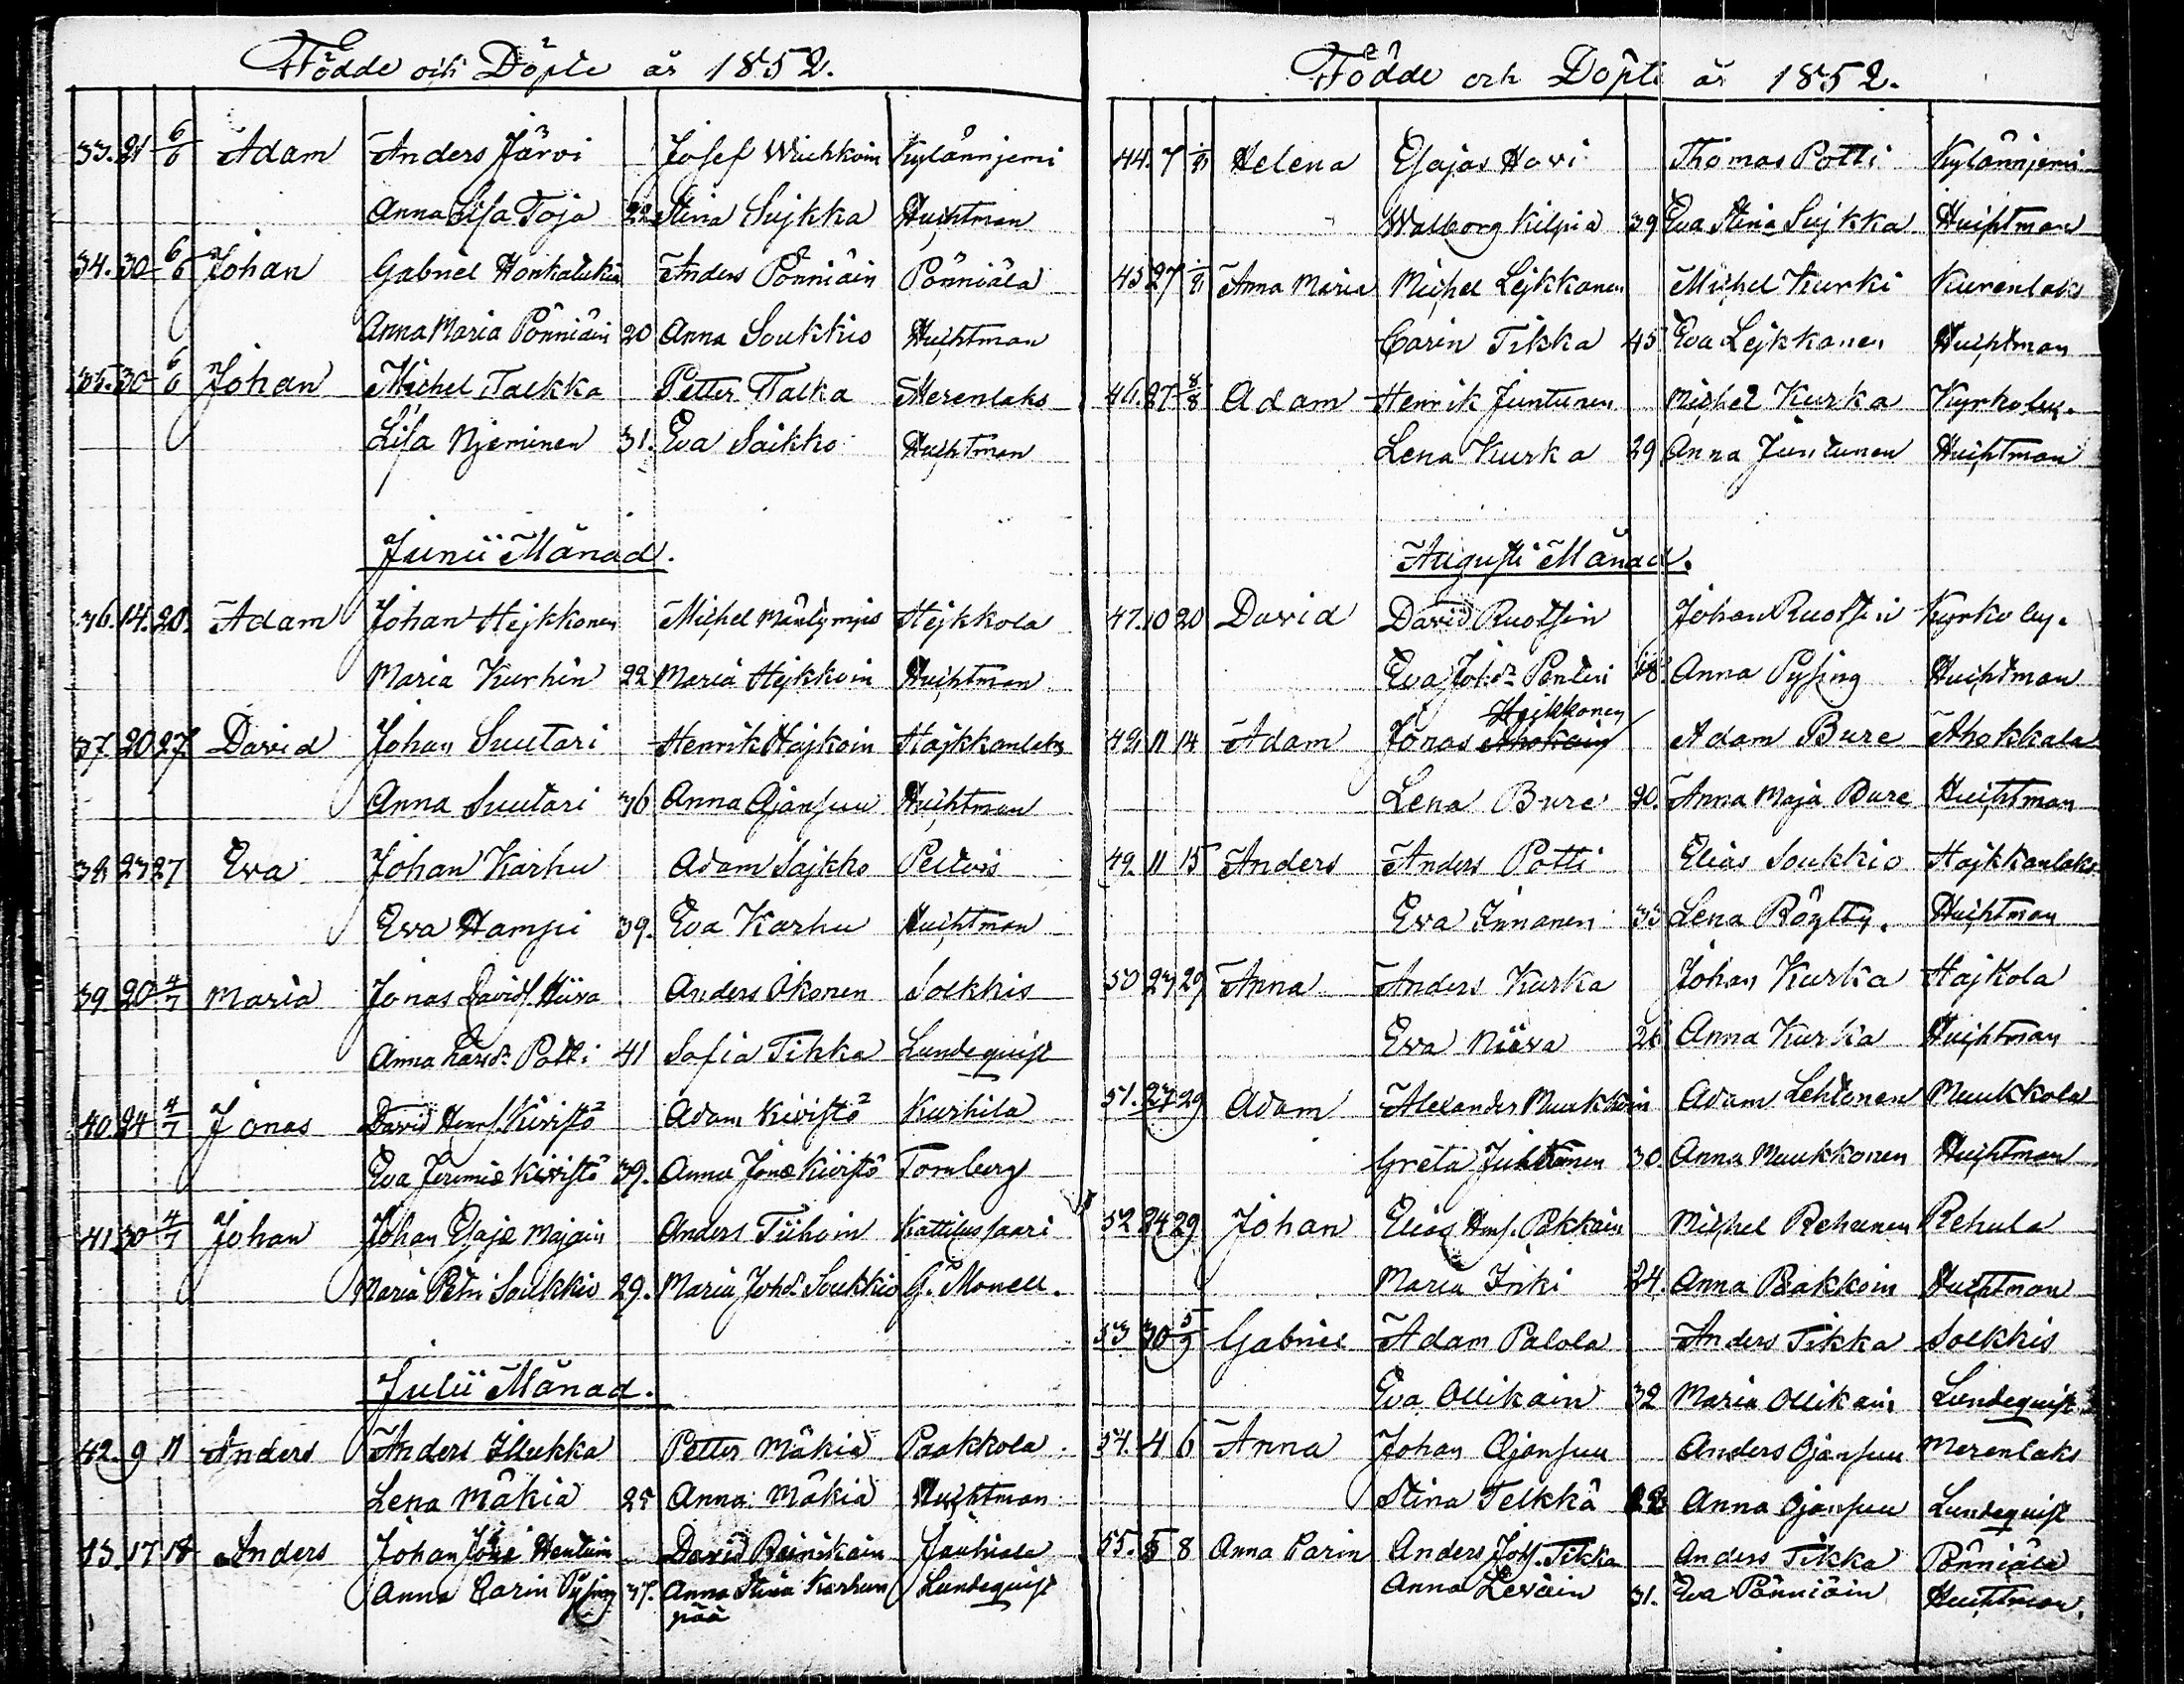 Födde och Döpte år 1852.
33. 21 6/6 Adam Anders Järvi Josef Wichkoin Kylänniemi
Anna Lisa Toja 22 Stina Sujkka Huihtman
34. 30 6/6 Johan Gabriel Honkalukia Anders Pönniäin Pönniälä
Anna Maria Pönniäin 20 Anna Soukkio Huihtman
35. 30 6/6 Johan Michel Talkka Petter Talka Merenlaks
Lisa Njeminen 31. Eva Saikko Huihtman
Junii Månad.
36. 14. 20. Adam Johan Hejkkonen Michel Hejkkola
Maria Kurhin 22 Maria Hejkkoin Huihtman
37. 20 27. David Johan Suutari Henrik Hajkoin Hajkkanlaks
Anna Suutari 36 Anna Ojansuu Huihtman
38 23 27 Eva Johan Karhu Adam Sajkko Peltois
Eva Hampi 39. Eva Karhu Huihtman
39. 20 4/7 Maria Jonas Davids. Niiva Anders Ikonen Solkkis
Anna Larsdr Potti 41 Sofia Tikka Lundequist
40. 24 4/7 Jonas David Henrs. Kivistö Adam Kivistö Kurhila
Eva Jeremiæ Kivistö 39. Anna Jonæ Kivistö Tornberg
41 30 4/7 Johan Johan Esajæ Majain Anders Tiihoin Kattilussaari
Maria Petri Soukkio 29. Maria Johd. Soukkio G. Monell.
Julii Månad.
42. 9 11 Anders Anders Ilukka Petter Mäkiä Paakkola
Lena Mäkiä 25 Anna Mäkiä Huihtman
43. 17 18 Anders Johan David Reinikain Jauhiala
Anna Carin Pysing 37. Anna Stina Karhun Lundequist
pää
Födde och Döpte år 1852.
44. 7 1/8 Helena Esajas Hovi Thomas Potti Kylänniemi
Walborg Kilpiä 39 Eva Stina Sujkka Huihtman
45 27 1/8 Anna Maria Michel Lejkkonen Michel Kurki Kurenlaks
Carin Tikka 45 Eva Lejkkonen Huihtman
46. 27 8/8 Adam Henrik Juntunen Michel Kurka Kyrkoby.
Lena Kurka 29 Anna Juntunen Huihtman
Augusti Månad.
47. 10 20 David David Ruotsin Johan Ruotsin Kyrkoby.
Eva Johsdr Penteri 18. Anna Pysing Huihtman
Hejkkonen
48. 11 14 Adam Jonas Adam Bure Ahokkala
Lena Bure 20. Anna Maja Bure Huihtman
49. 11 15 Anders Anders Potti Elias Soukkio Hajkkanlaks
Eva Innanen 33 Lena Röytty. Huihtman
50 23 29 Anna Anders Kurka Johan Kurka Hajkola
Eva Niiva 26 Anna Kurka Huihtman
51. 27 29 Adam Alexander Muukkoin Adam Lehtonen Muukkola
Greta Juhtonen 30. Anna Muukkonen Huihtman
52 24 29 Johan Elias Hens. Pakkain Michel Rehunen Rehula
Maria Inki 24. Anna Pakkoin Huihtman
53 30 5/9 Gabriel Adam Palola Anders Tikka Solkkis
Eva Ollikain 32 Maria Ollikain Lundequist
54. 4 6 Anna Johan Ojansuu Anders Ojansuu Merenlaks
Stina Telkkä 22 Anna Ojansuu Lundequist
55. 5 8 Anna Carin Anders Jos. Tikka Anders Tikka Pönniälä
Anna Leväin 31. Eva Pönniäin Huihtman.